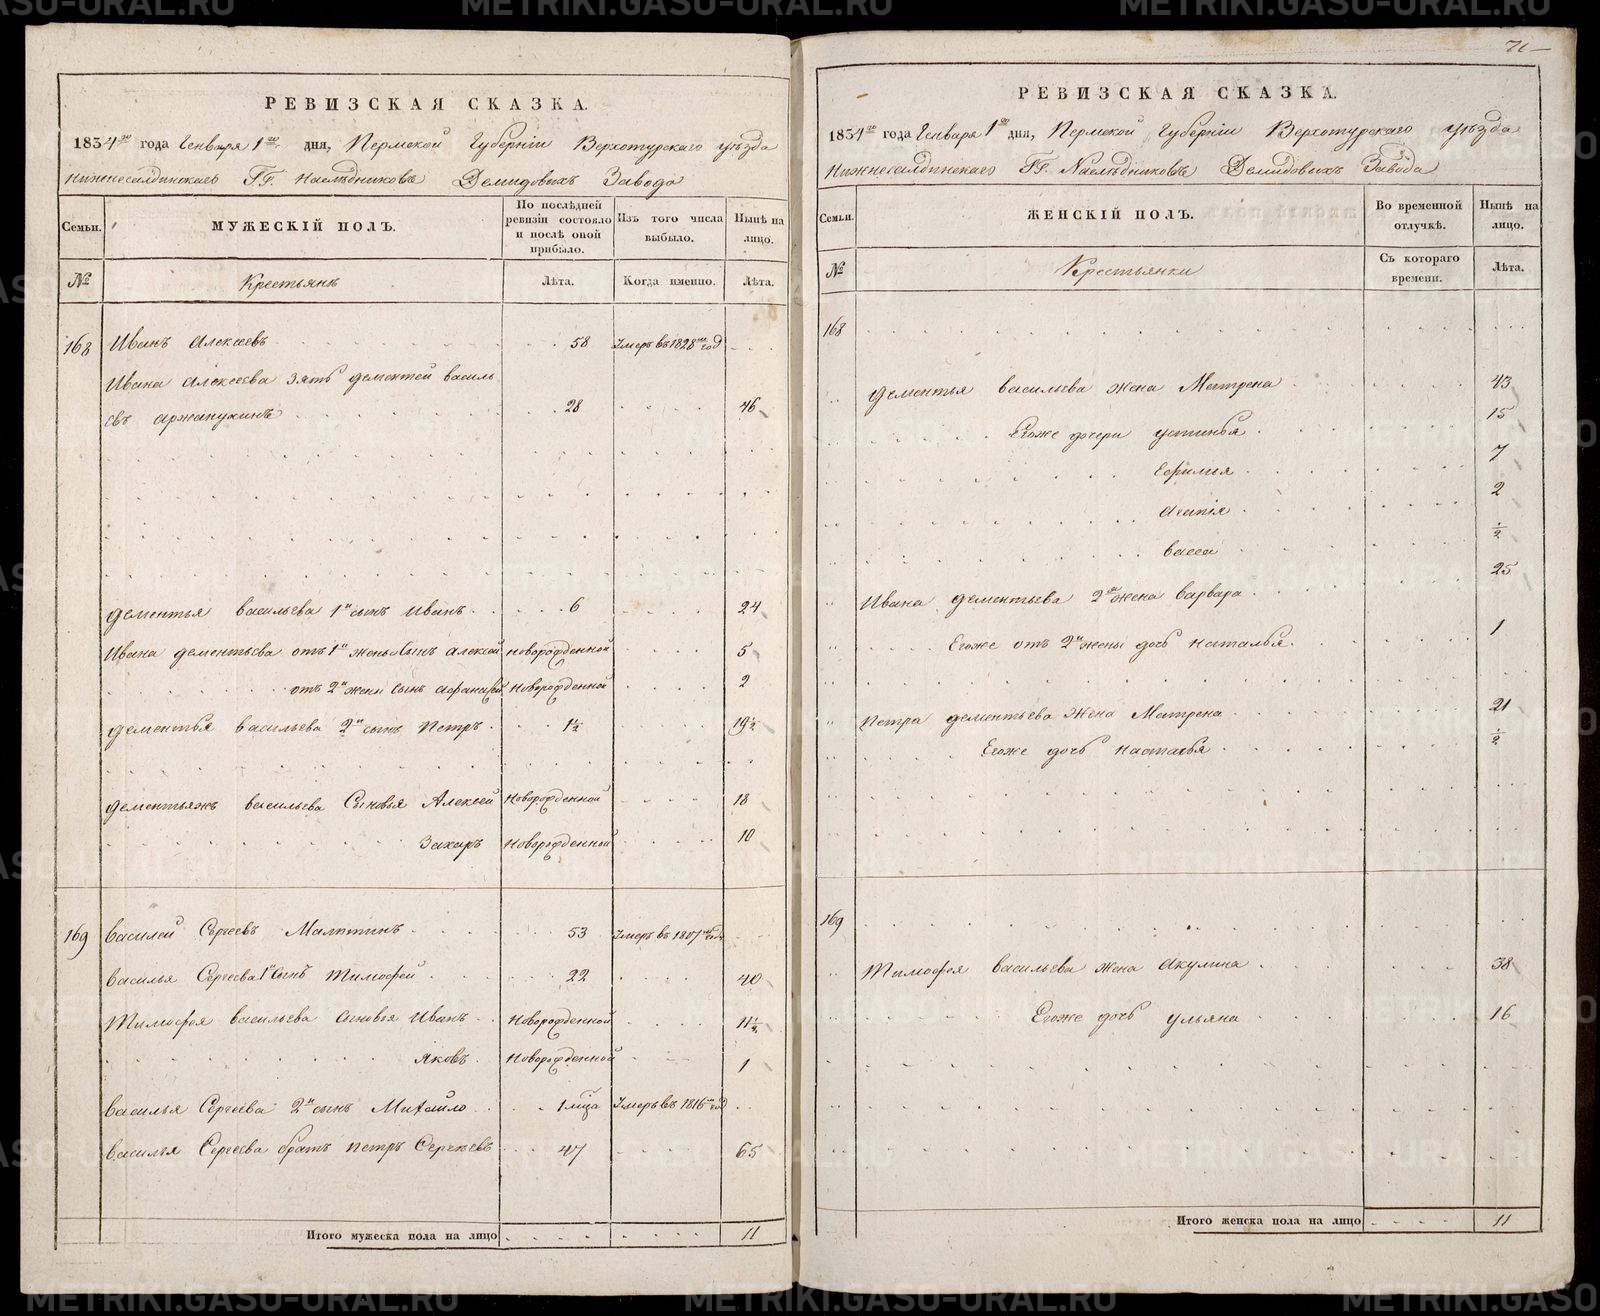 РЕВИЗСКАЯ СКАЗКА.
1834го года Генваря 1го дня, Пермской Губерніи Верхотурскаго уѣзда
Нижнесалдинскаго ГГ. Наслѣдниковъ Демидовыхъ Завода
Семьи. МУЖЕСКІЙ ПОЛЪ. По послѣдней ревизіи состояло и послѣ оной прибыло. Изъ того числа выбыло. Нынѣ на лицо.
№ Крестьянъ Лѣта. Когда именно. Лѣта.
168 Иванъ Алексеевъ 58 Умеръ въ 1828м год
Ивана Алексеева зять дементей василь
евъ аржанухинъ 28 46
дементья васильева 1й сынъ Иванъ 6 24
Ивана дементьева отъ 1й жены Сынъ алексей новорожденной 5
отъ 2й жены Сынъ афанасей Новорожденной 2
дементья васильева 2й сынъ Петръ 1½ 19½
дементьяжъ васильева Сыновья Алексей Новорожденной 18
Захаръ Новорожденной 10
169 василей Сергеевъ Малютинъ 53 Умеръ въ 1807м году
василья Сергеева 1й Сынъ тимофей 22 40
тимофея васильева Сыновья Иванъ Новорожденной 11½
яковъ Новорожденной 1
василья Сергеева 2й сынъ Михайло 1 мца Умеръ въ 1816м год
василья Сергеева братъ петръ Сергеевъ 47 65
Итого мужеска пола на лицо 11
71
РЕВИЗСКАЯ СКАЗКА.
1834го года Генваря 1го дня, Пермской Губерніи Верхотурскаго уѣзда
Нижнесалдинскаго ГГ. Наслѣдниковъ Демидовыхъ Завода
Семьи. ЖЕНСКІЙ ПОЛЪ. Во временной отлучкѣ. Нынѣ на лицо.
№ Крестьянки Съ котораго времени. Лѣта.
168
дементья васильева жена Матрена 43
Егоже дочери устинья 15
Ефимья 7
Агапія 2
васса ½
Ивана дементьева 2я жена варвара 25
Егоже отъ 2й жены дочь наталья 1
петра дементьева Жена Матрена 21
Егоже дочь настасья ½
169
тимофея васильева жена акулина 38
Егоже дочь ульяна 16
Итого женска пола на лицо 11
METRIKI.GASO-URAL.RU